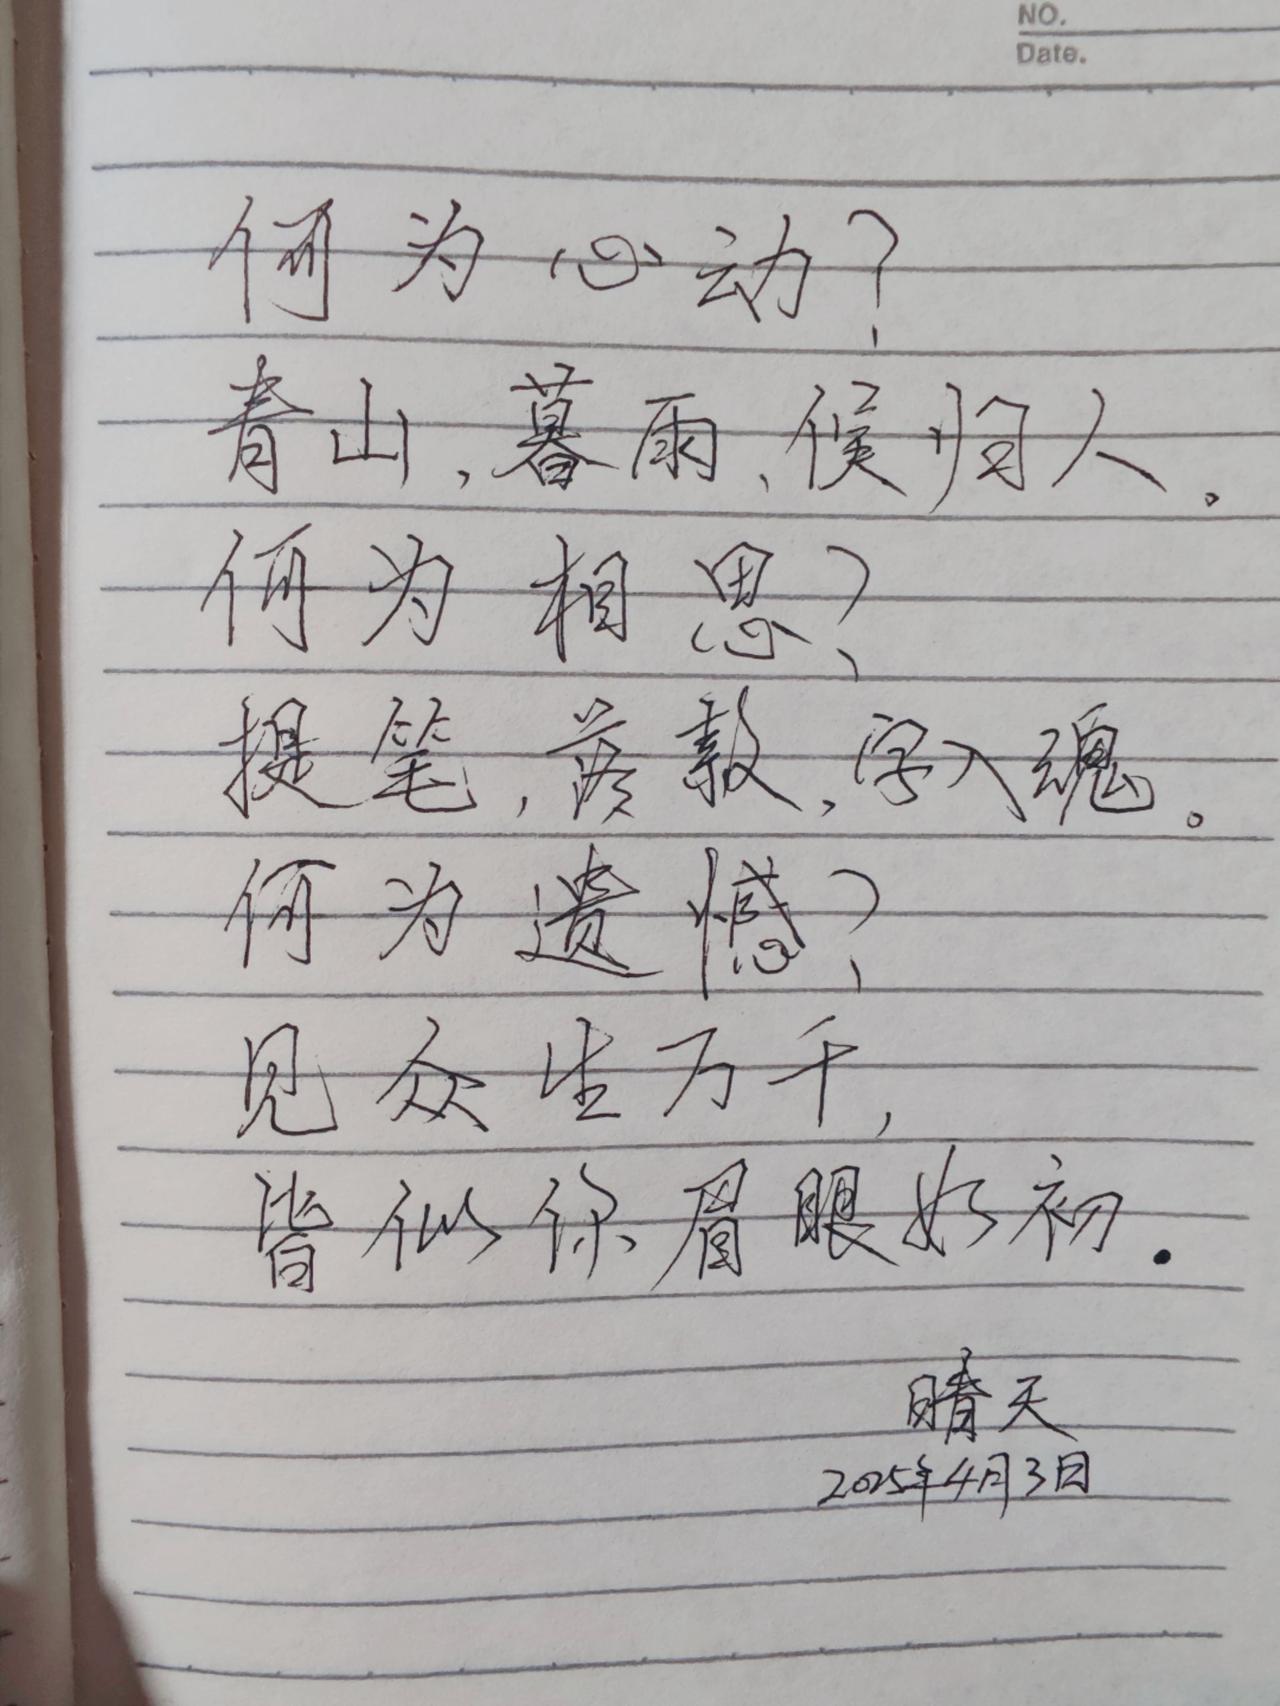 NO.
Date.
何为心动?
青山,暮雨,候归人。
何为相思?
提笔,落款,字入魂。
何为遗憾?
见众生万千,
皆似你眉眼如初.
晴天
2025年4月3日